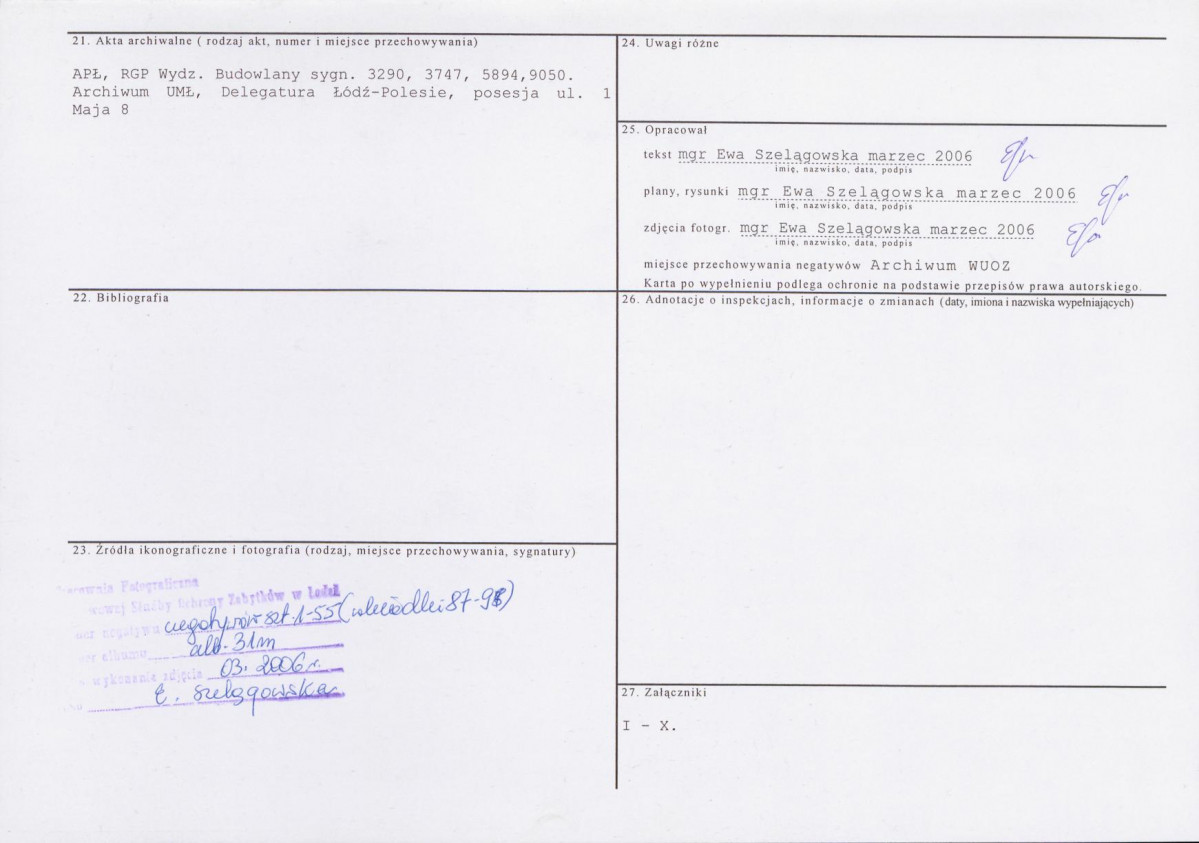 21. Akta archiwalne ( rodzaj akt, numer i miejsce przechowywania)
APŁ, RGP Wydz. Budowlany sygn. 3290, 3747, 5894,9050.
Archiwum UMŁ, Delegatura Łódź-Polesie, posesja ul. 1
Maja 8
22. Bibliografia
23. Źródła ikonograficzne i fotografia (rodzaj, miejsce przechowywania, sygnatury)
Fotograficzna
Służby Ochrony Zabytków w Łodzi
negatywu negatywów szt. 1-55 (
albumu alb. 31m
wykonania zdjęcia 03. 2006 r.
E. Szelągowska
24. Uwagi różne
25. Opracował
tekst mgr Ewa Szelągowska marzec 2006
imię, nazwisko, data, podpis
plany, rysunki mgr Ewa Szelągowska marzec 2006
imię, nazwisko, data, podpis
zdjęcia fotogr. mgr Ewa Szelągowska marzec 2006
imię, nazwisko, data, podpis
miejsce przechowywania negatywów Archiwum WUOZ
Karta po wypełnieniu podlega ochronie na podstawie przepisów prawa autorskiego.
26. Adnotacje o inspekcjach, informacje o zmianach (daty, imiona i nazwiska wypełniających)
27. Załączniki
I - X.